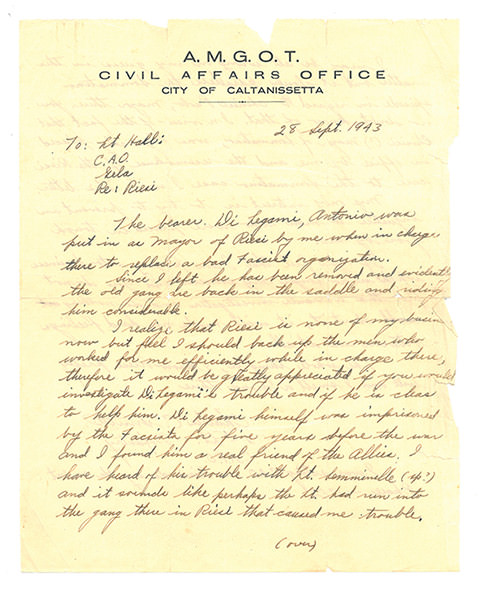 A. M. G. O. T.
CIVIL AFFAIRS OFFICE
CITY OF CALTANISSETTA
28 Sept. 1943
To: Lt Hall:
C.A.O.
Gela
Re: Riesi
The bearer. Di Legami, Antonio was
put in as Mayor of Riesi by me when in charge
there to replace a bad Fascist organization.
Since I left he has been removed and evidently
the old gang are back in the saddle and riding
him considerable.
I realize that Riesi is none of my busin
now but feel I should back up the men who
worked for me efficiently while in charge there,
therefore it would be greatly appreciated if you would
investigate Di Legami's trouble and if he is clear
to help him. Di Legami himself was imprisoned
by the Fascists for five years before the war
and I found him a real friend of the Allies. I
have heard of his trouble with Lt. (sp?)
and it sounds like perhaps the Lt. had run into
the gang there in Riesi that caused me trouble.
(over)